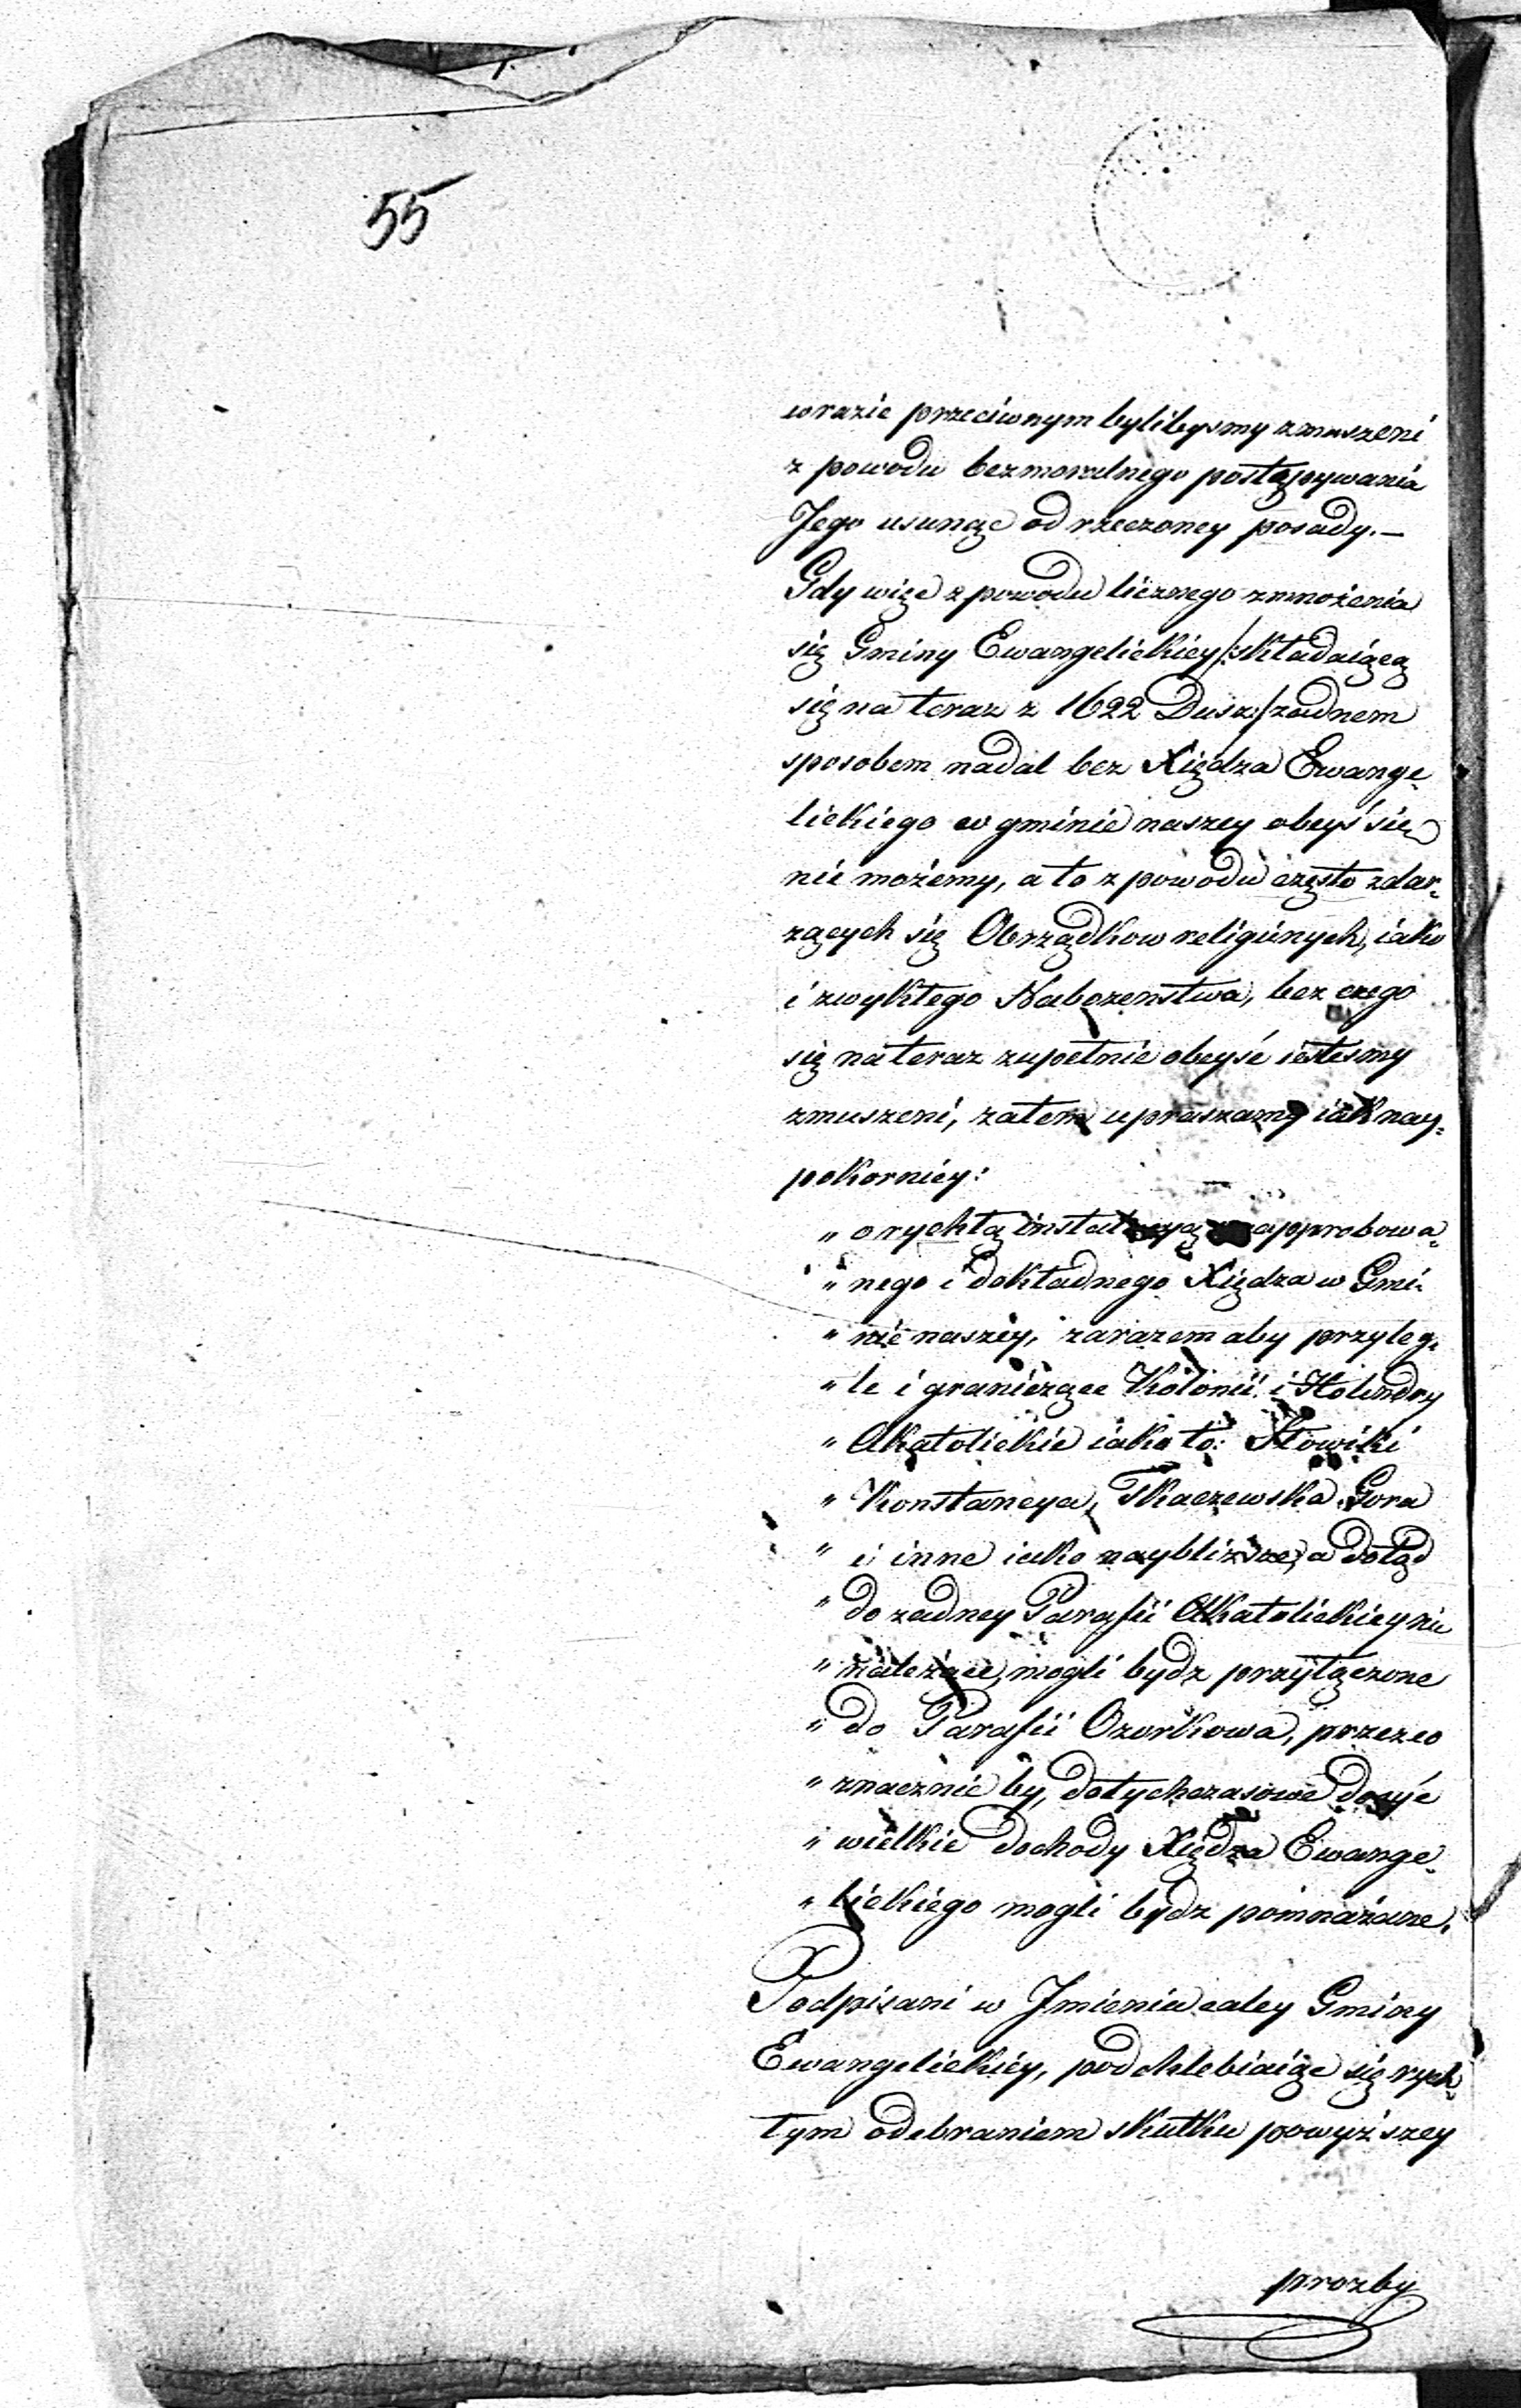 55
w razie przeciwnym bylibysmy zmuszeni
z powodu bezmoralnego postępywania
Jego usunąc od rzeczoney posady. —
Gdy więc z powodu licznego zmnożenia
się Gminy Ewangelickiey /:składaiącą
się na teraz z 1622 Dusz:/ zadnem
sposobem nadal bez Xiędza Ewange„
lickiego w gminie naszey obeyś się
nie możemy, a to z powodu często zdar„
zących się Obrządkow religiinych, iako
i zwykłego Nabozenstwa, bez czego
się na teraz zupełnie obeyść iestesmy
zmuszeni, zatem upraszamy iak nay„
pokorniey:
„ o rychłą instalacyą approbowa„
„ nego i dokładnego Xiędza w Gmi„
„ nie naszey, zarazem aby przyleg„
„ łe i graniczące Kolonii i Holendry
„ Akatolickie iako to: Słowiki
„ Konstancya, Tkaczewska Gora
„ i inne iako naybliższe, a dotąd
„ do zadney Parafii Akatolickiey nie
„ należące, mogli bydz przyłączone
„ do Parafii Ozorkowa, przezco
„ znacznie by, dotychczasowe dosyć
„ wielkie dochody Xiędza Ewange„
„ lickiego mogli bydz pomnażane.
Podpisani w Jmieniu całey Gminy
Ewangelickiey, podchlebiaiąc się rych„
łym odebraniem skutku powyższey
prozby